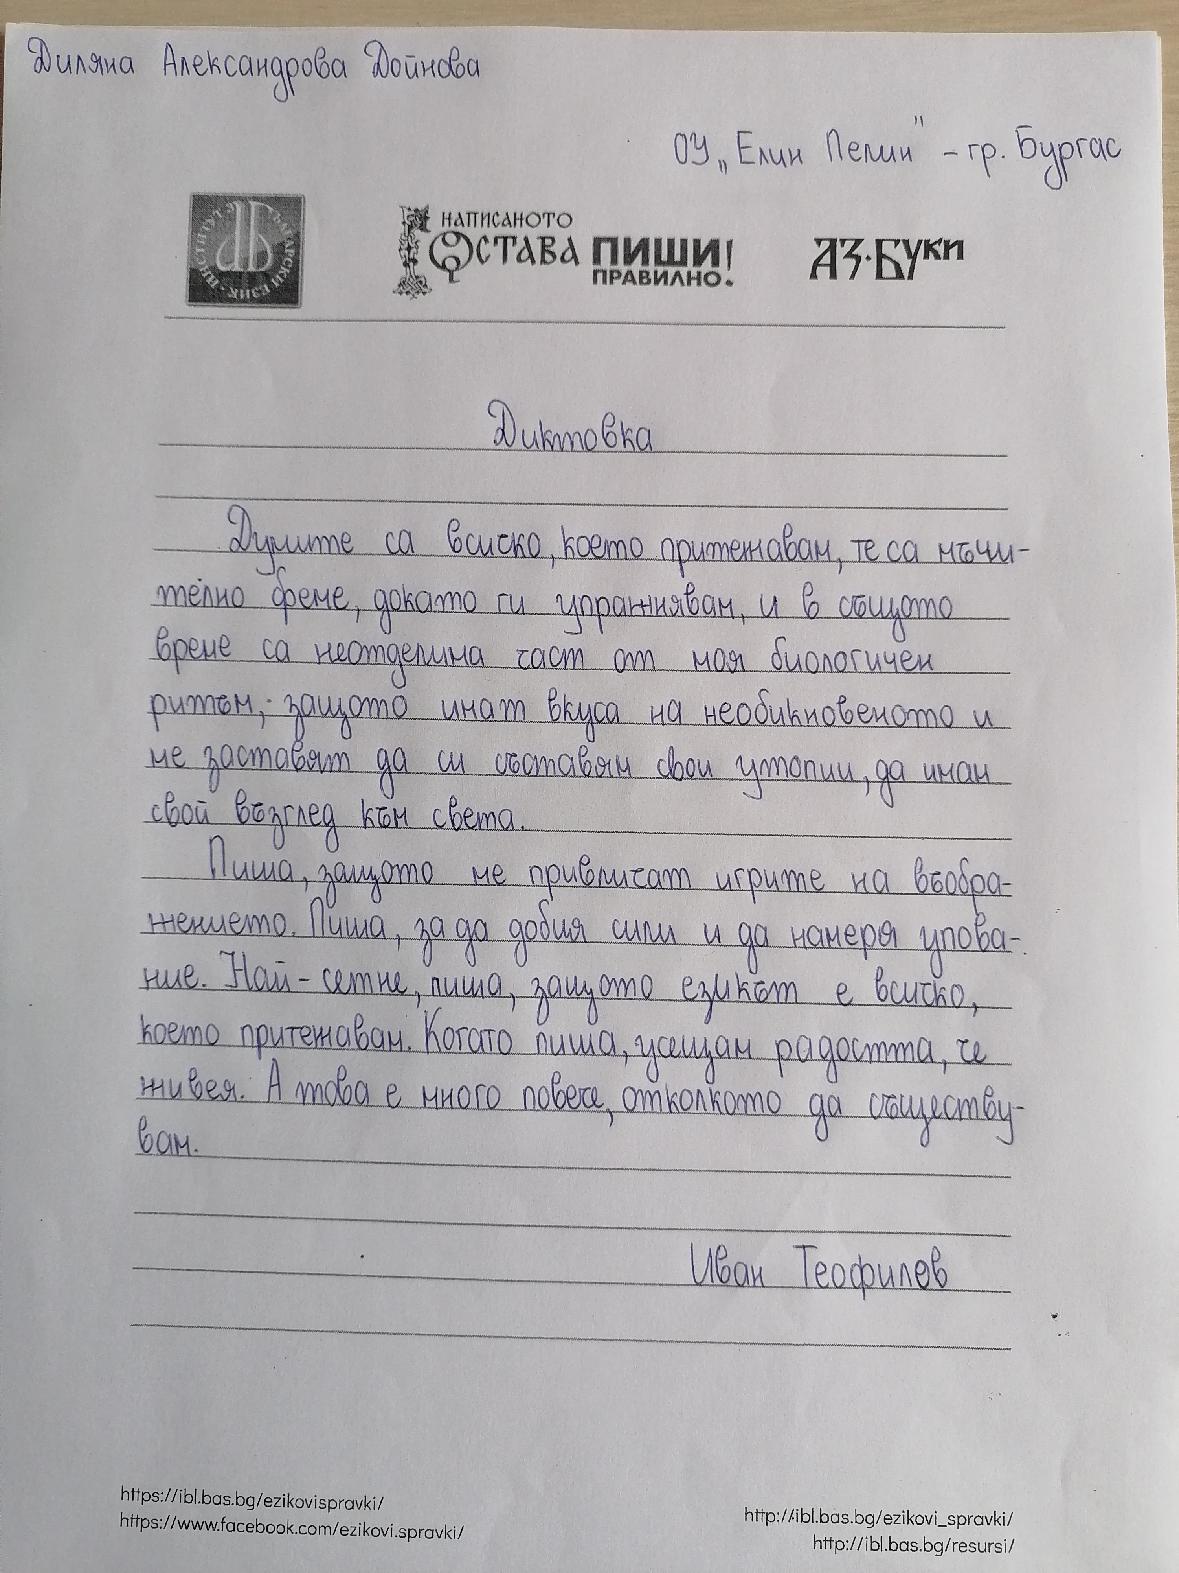 Диляна Александрова Дойнова
ОУ „Елин Пелин" - гр. Бургас
НАПИСАНОТО
ОСТАВА ПИШИ!
ПРАВИЛНО.
АЗ·БУКИ
Диктовка
Думите са всиско, което притежавам, те са мъчи-
телно бреме, докато ги упражнявам, и в същото
време са неотделима част от моя биологичен
ритъм, защото имат вкуса на необикновеното и
ме заставят да си съставям свои утопии, да имам
свой възглед към света.
Пиша, защото ме привличат игрите на въобра-
жението. Пиша, за да добия сили и да намеря упова-
ние. Най-сетне, пиша, защото езикът е всиско,
което притежавам. Когато пиша, усещам радостта, че
живея. А това е много повече, отколкото да съществу-
вам.
Иван Теофилов
https://ibl.bas.bg/ezikovispravki/
https://www.facebook.com/ezikovi.spravki/
http://ibl.bas.bg/ezikovi_spravki/
http://ibl.bas.bg/resursi/